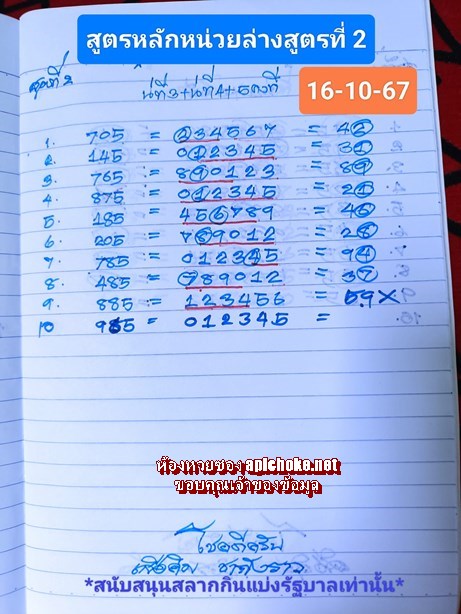 สูตรหลักหน่วยล่างสูตรที่ 2
สูตรที่ 2
16-10-67
1. 705 = 234567 = 42
2. 145 = 012345 = 31
3. 765 = 890123 = 89
4. 875 = 012345 = 21
5. 185 = 456789 = 46
6. 205 = 789012 = 28
7. 785 = 012345 = 94
8. 485 = 789012 = 37
9. 885 = 123456 = 59 X
10 985 = 012345 =
ห้องหวยซอง apichoke.net
ขอบคุณเจ้าของข้อมูล
โชคดีครับ
*สนับสนุนสลากกินแบ่งรัฐบาลเท่านั้น*